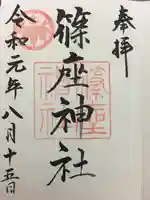 奉拝
篠座神社
令和元年八月十五日